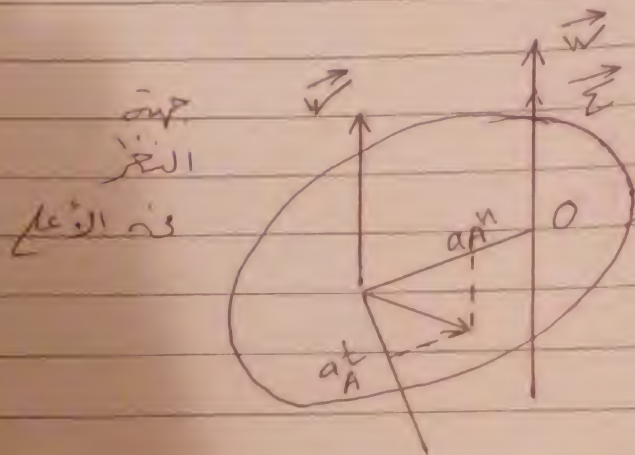 جهة
النظر
من الأعلى
w
w
ε
O
aAⁿ
aAᵗ